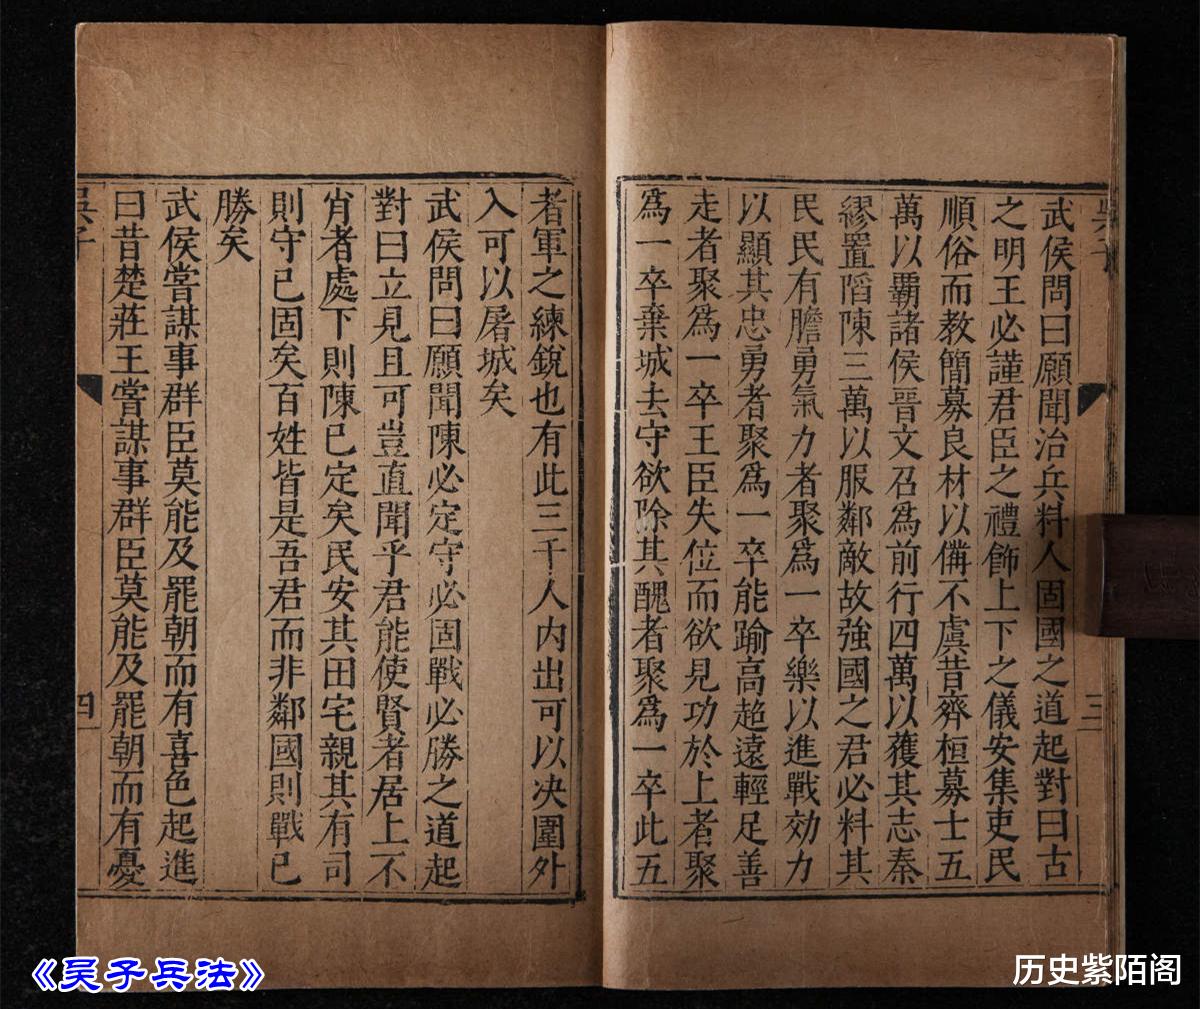 武侯問曰願聞治兵料人固國之道起對曰古
之明王必謹君臣之禮飾上下之儀安集吏民
順俗而教簡募良材以備不虞昔齊桓募士五
萬以霸諸侯晉文召為前行四萬以獲其志秦
繆置䧟陳三萬以服鄰敵故強國之君必料其
民民有膽勇氣力者聚為一卒樂以進戰効力
以顯其忠勇者聚為一卒能踰高超遠輕足善
走者聚為一卒王臣失位而欲見功於上者聚
為一卒棄城去守欲除其醜者聚為一卒此五
三
者軍之練銳也有此三千人內出可以决圍外
入可以屠城矣
武侯問曰願聞陳必定守必固戰必勝之道起
對曰立見且可豈直聞乎君能使賢者居上不
肖者處下則陳已定矣民安其田宅親其有司
則守已固矣百姓皆是吾君而非鄰國則戰已
勝矣
武侯嘗謀事群臣莫能及罷朝而有喜色起進
曰昔楚莊王嘗謀事群臣莫能及罷朝而有憂
吳子
四
《吴子兵法》
历史紫陌阁